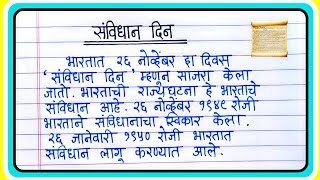 संविधान दिन
भारतात २६ नोव्हेंबर हा दिवस
‘संविधान दिन’ म्हणून साजरा केला
जातो. भारताची राज्यघटना हे भारताचे
संविधान आहे. २६ नोव्हेंबर १९४९ रोजी
भारताने संविधानाचा स्विकार केला.
२६ जानेवारी १९५० रोजी भारतात
संविधान लागू करण्यात आले.